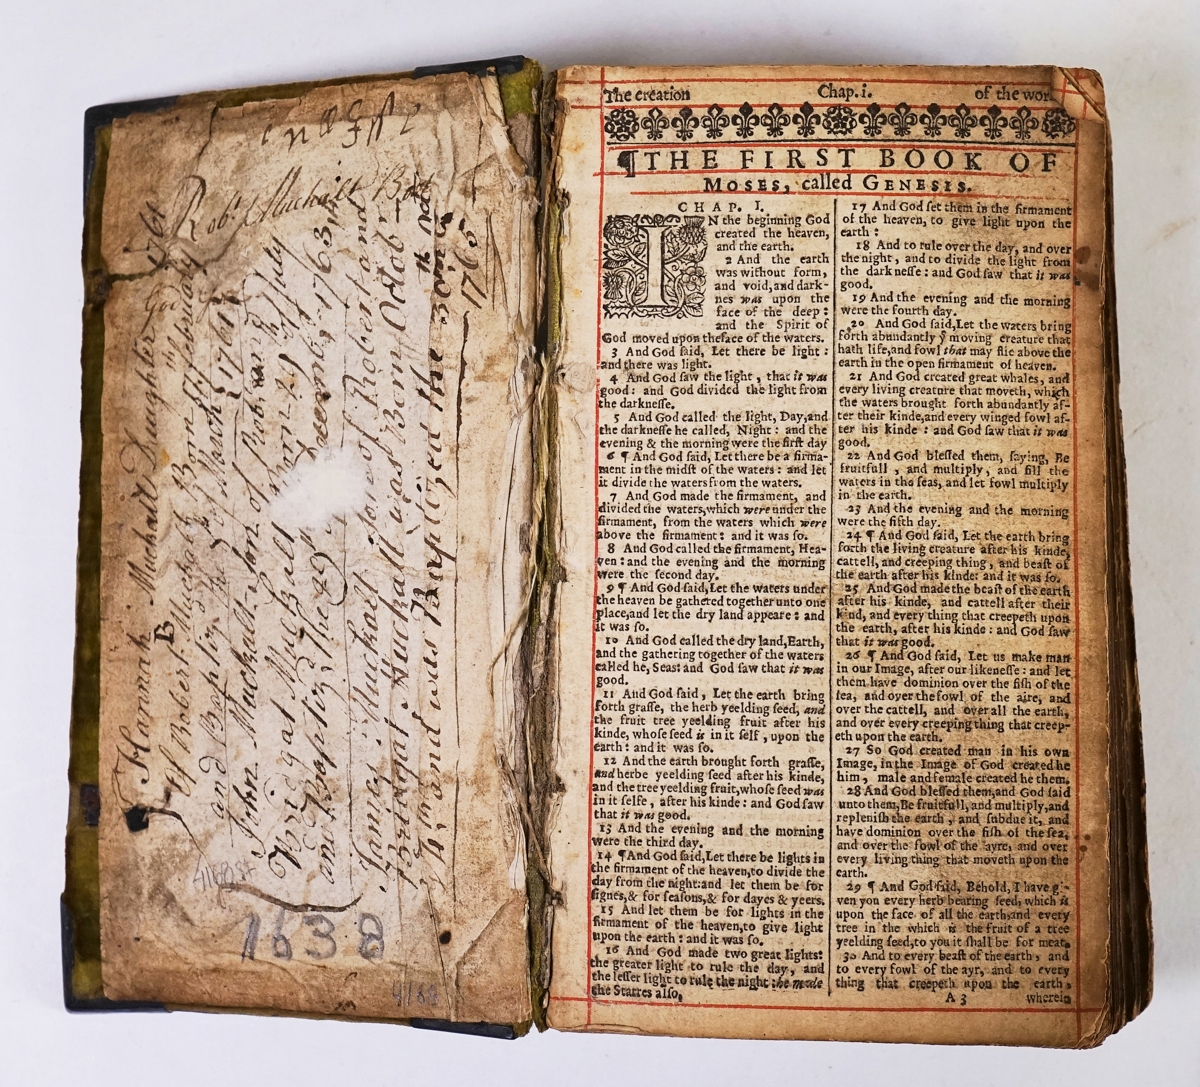 Robt Muchall
Hannah Muchall Daughter
of Robert Muchall Born Febriary 1761
and of March 1761
John Muchall Son of Rob
Muchell Born of July
and the 29 1763
Muchall son of Robert and
Muchall was Born October
4th and was Baptized the 30th
1765
1638
4168
The creation Chap. i. of the
¶THE FIRST BOOK OF
MOSES, called GENESIS.
CHAP. I.
IN the beginning God
created the heaven,
and the earth.
2 And the earth
was without form,
and void, and dark-
nes was upon the
face of the deep:
and the Spirit of
God moved upon the face of the waters.
3 And God ſaid, Let there be light:
and there was light.
4 And God ſaw the light, that it was
good: and God divided the light from
the darkneſſe.
5 And God called the light, Day, and
the darkneſſe he called, Night: and the
evening & the morning were the firſt day
6 ¶ And God ſaid, Let there be a firma-
ment in the midſt of the waters: and let
it divide the waters from the waters.
7 And God made the firmament, and
divided the waters, which were under the
firmament, from the waters which were
above the firmament: and it was ſo.
8 And God called the firmament, Hea-
ven: and the evening and the morning
were the second day.
9 ¶ And God ſaid, Let the waters under
the heaven be gathered together unto one
place, and let the dry land appeare: and
it was ſo.
10 And God called the dry land, Earth,
and the gathering together of the waters
called he, Seas: and God ſaw that it was
good.
11 And God ſaid, Let the earth bring
forth graſſe, the herb yeelding ſeed, and
the fruit tree yeelding fruit after his
kinde, whoſe ſeed is in it ſelf, upon the
earth: and it was ſo.
12 And the earth brought forth graſſe,
and herbe yeelding ſeed after his kinde,
and the tree yeelding fruit, whoſe ſeed was
in it ſelfe, after his kinde: and God ſaw
that it was good.
13 And the evening and the morning
were the third day.
14 ¶ And God ſaid, Let there be lights in
the firmament of the heaven, to divide the
day from the night: and let them be for
ſignes, & for ſeaſons, & for dayes & yeers.
15 And let them be for lights in the
firmament of the heaven, to give light
upon the earth: and it was ſo.
16 And God made two great lights:
the greater light to rule the day, and
the leſſer light to rule the night: he made
the Starres alſo.
17 And God ſet them in the firmament
of the heaven, to give light upon the
earth:
18 And to rule over the day, and over
the night, and to divide the light from
the darkneſſe: and God ſaw that it was
good.
19 And the evening and the morning
were the fourth day.
20 And God ſaid, Let the waters bring
forth abundantly yͤ moving creature that
hath life, and fowl that may flie above the
earth in the open firmament of heaven.
21 And God created great whales, and
every living creature that moveth, which
the waters brought forth abundantly af-
ter their kinde, and every winged fowl af-
ter his kinde: and God ſaw that it was
good.
22 And God bleſſed them, ſaying, Be
fruitfull, and multiply, and fill the
waters in the ſeas, and let fowl multiply
in the earth.
23 And the evening and the morning
were the fifth day.
24 ¶ And God ſaid, Let the earth bring
forth the living creature after his kinde,
cattell, and creeping thing, and beaſt of
the earth after his kinde: and it was ſo.
25 And God made the beaſt of the earth
after his kinde, and cattell after their
kind, and every thing that creepeth upon
the earth, after his kinde: and God ſaw
that it was good.
26 ¶ And God ſaid, Let us make man
in our Image, after our likeneſſe: and let
them have dominion over the fiſh of the
ſea, and over the fowl of the aire, and
over the cattell, and over all the earth,
and over every creeping thing that creep-
eth upon the earth.
27 So God created man in his own
Image, in the Image of God created he
him, male and female created he them.
28 And God bleſſed them, and God ſaid
unto them, Be fruitfull, and multiply, and
repleniſh the earth, and ſubdue it, and
have dominion over the fiſh of the ſea,
and over the fowl of the ayre, and over
every living thing that moveth upon the
earth.
29 ¶ And God ſaid, Behold, I have gi-
ven you every herb bearing ſeed, which is
upon the face of all the earth, and every
tree in the which is the fruit of a tree
yeelding ſeed, to you it ſhall be for meat.
30 And to every beaſt of the earth, and
to every fowl of the ayr, and to every
thing that creepeth upon the earth,
A 3 wherein